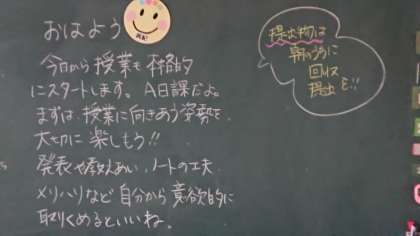 おはよう
今日から授業も本格的
にスタートします。A日課だよ。
まずは授業に向きあう姿勢を
大切に楽しもう!!
発表や教えあい、ノートの工夫
メリハリなど自分から意欲的に
取りくめるといいね。
提出物は
朝のうちに
回収
提出を!!